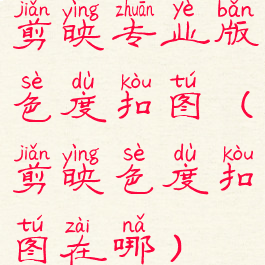 jiǎn yìng zhuān yè bǎn
剪映专业版
sè dù kòu tú
色度扣图（
jiǎn yìng sè dù kòu
剪映色度扣
tú zài nǎ
图在哪）